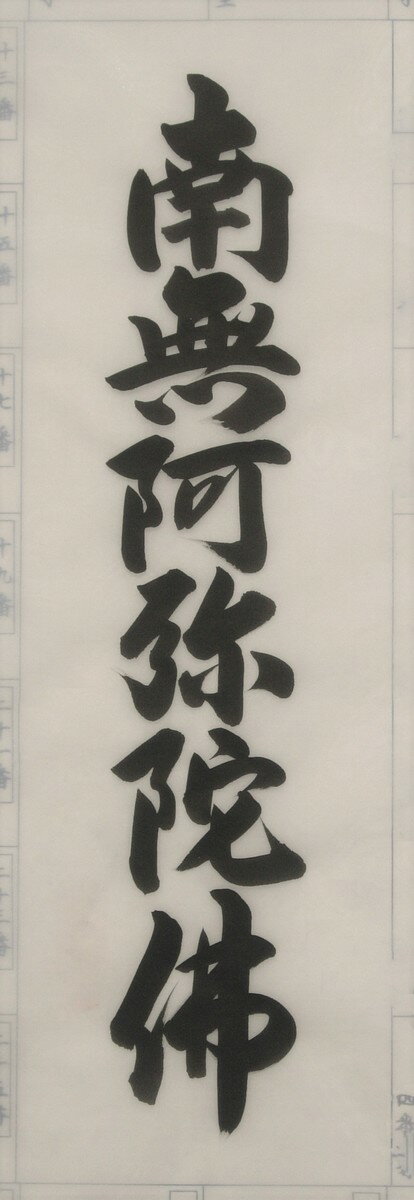 南無阿弥陀佛
十三番
十五番
十七番
十九番
二十一番
二十三番